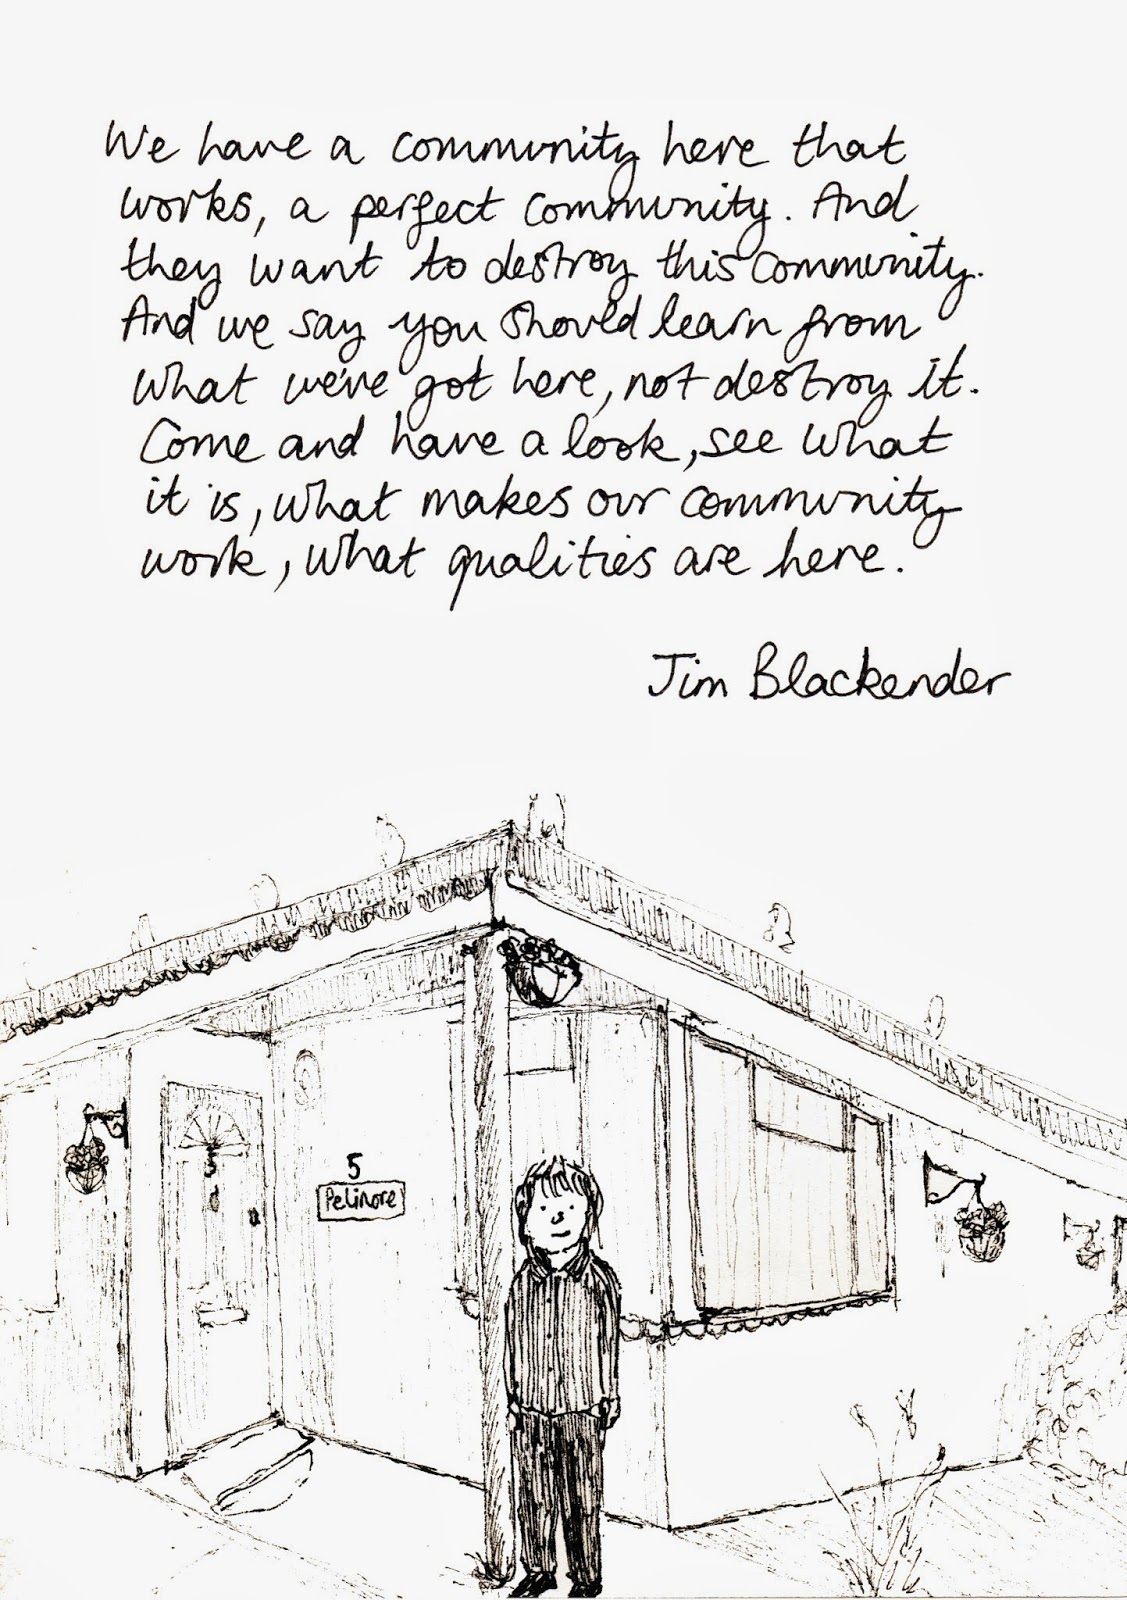 We have a community here that
works, a perfect community. And
they want to destroy this community.
And we say you should learn from
what we've got here, not destroy it.
Come and have a look, see what
it is, what makes our community
work, what qualities are here.
Jim Blackender
5
5
Pelinore